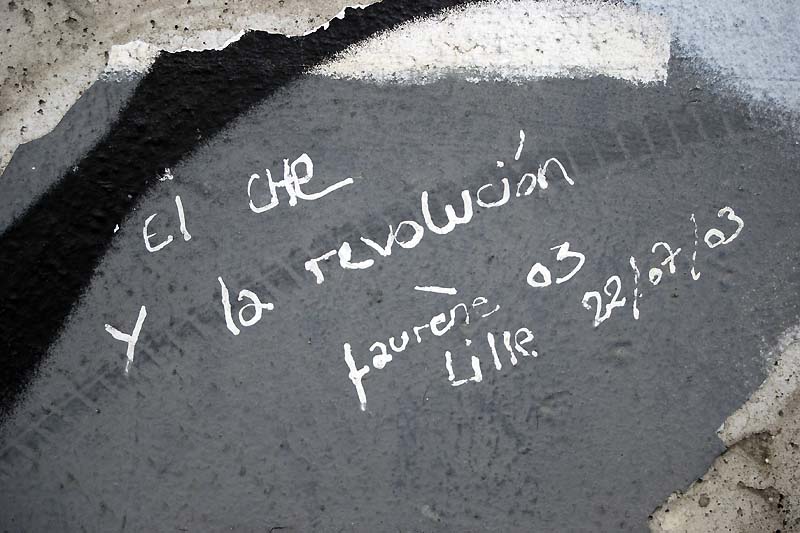 El CHe
Y la revolución
Laurène 03
Lille 22/07/03